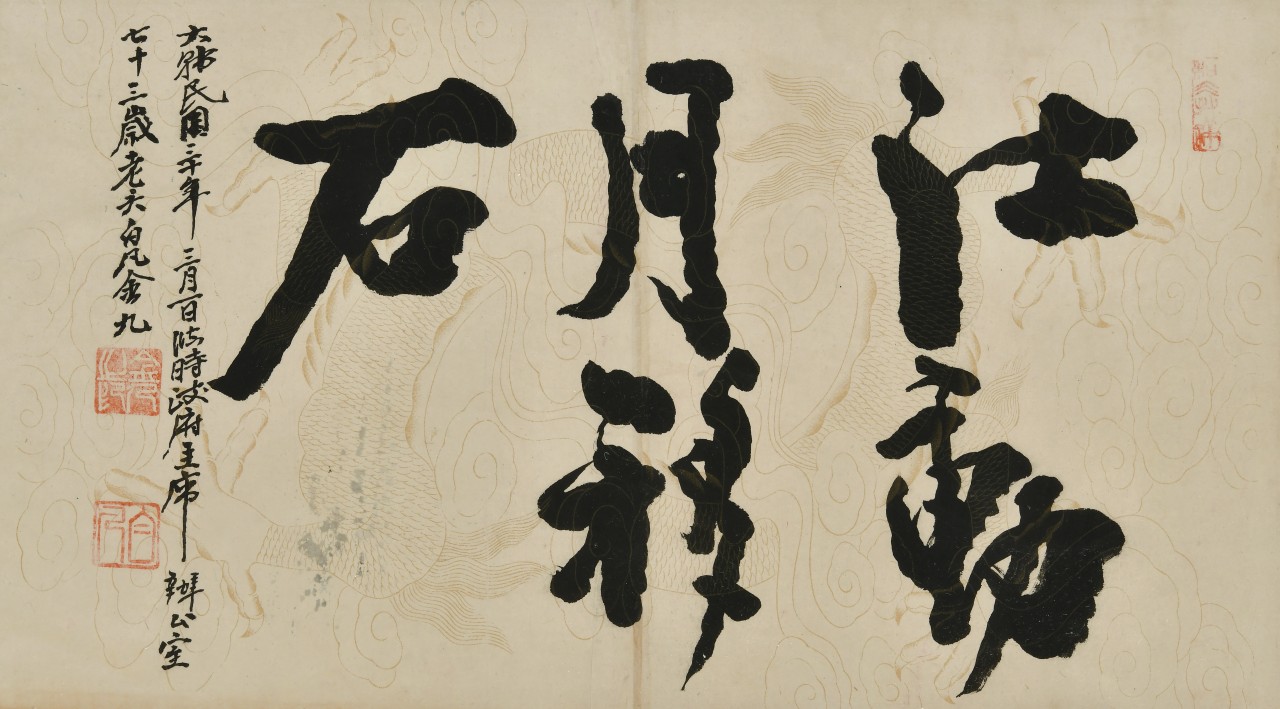 江動
月移
石
大韓民國三十年三月一日臨時政府主席辦公室
七十三歲老夫白凡金九